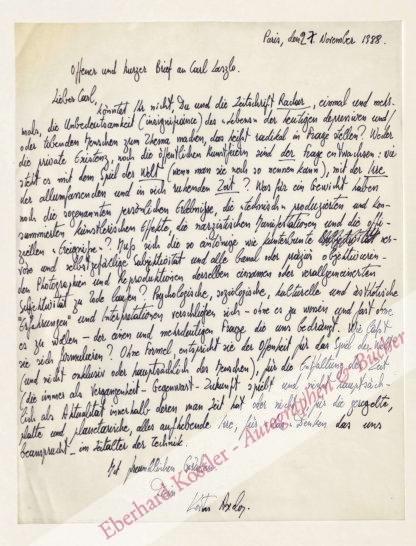 Paris, den 27 November 1988.
Offener und kurzer Brief an Carl Laszlo.
Lieber Carl,
könntet Ihr nicht, Du und die Zeitschrift Radar, einmal und mehr-
mals, die Unbedeutsamkeit (insignifiance) des «Lebens» der heutigen depressiven und/
oder tobenden Menschen zum Thema machen, das heißt radikal in Frage stellen? Weder
die private Existenz, noch die öffentlichen Kunstfiguren sind der Frage entwachsen: wie
steht es mit dem Spiel der Welt (wenn man sie noch so nennen kann), mit der Irre
der allumfassenden und in sich ruhenden Zeit? Was für ein Gewicht haben
noch die sogenannten persönlichen Erlebnisse, die technisch produzierten und kon-
sumierten künstlerischen Effekte, die narzistischen Manifestationen und die offi-
ziellen «Ereignisse»? Muß sich die so anfällige wie
und selbstgefällige Subjektivität und alle banal oder präzis objektivieren-
den Photographien und Reproduktionen derselben einsamen oder verallgemeinerten
Subjektivität zu Tode laufen? Psychologische, soziologische, kulturelle und ästhetische
Erfahrungen und Interpretationen verschließen sich - ohne es zu wissen und fast ohne
es zu wollen - der einen und mehrdeutigen Frage die uns bedrängt. Wie läßt
sie sich formulieren? Ohne Formel, entspricht sie der Offenheit für das Spiel der Welt
(und nicht exklusiv oder hauptsächlich des Menschen), für die Entfaltung der Zeit
(die immer als Vergangenheit - Gegenwart - Zukunft spielt und nicht hauptsäch-
lich als Aktualität innerhalb deren man Zeit hat oder nicht), für die geregelte,
platte und planetarische, alles aufhebende Irre, für das Denken das uns
beansprucht - im Zeitalter der Technik.
Mit freundlichen Grüßen
Dein
Kostas Axelos.
Eberhard Köstler - Autographen & Bücher